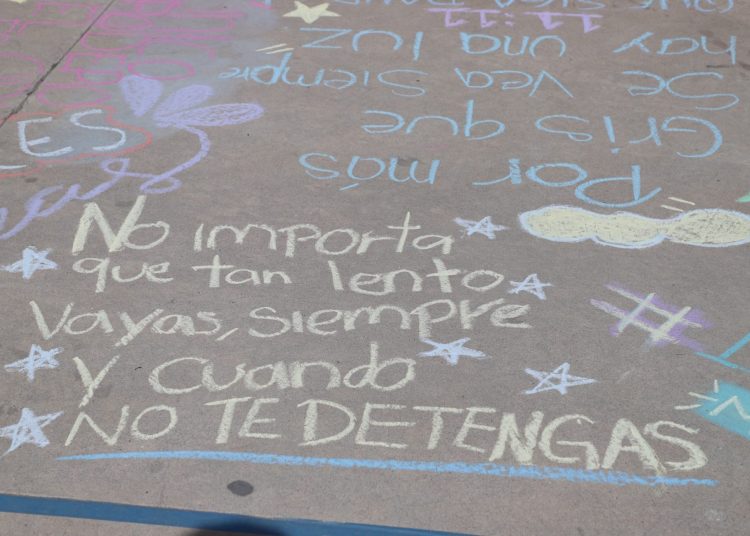 No importa
que tan lento
vayas, siempre
y cuando
NO TE DETENGAS
Por más
Gris que
Se vea siempre
hay una luz
11:11
LES